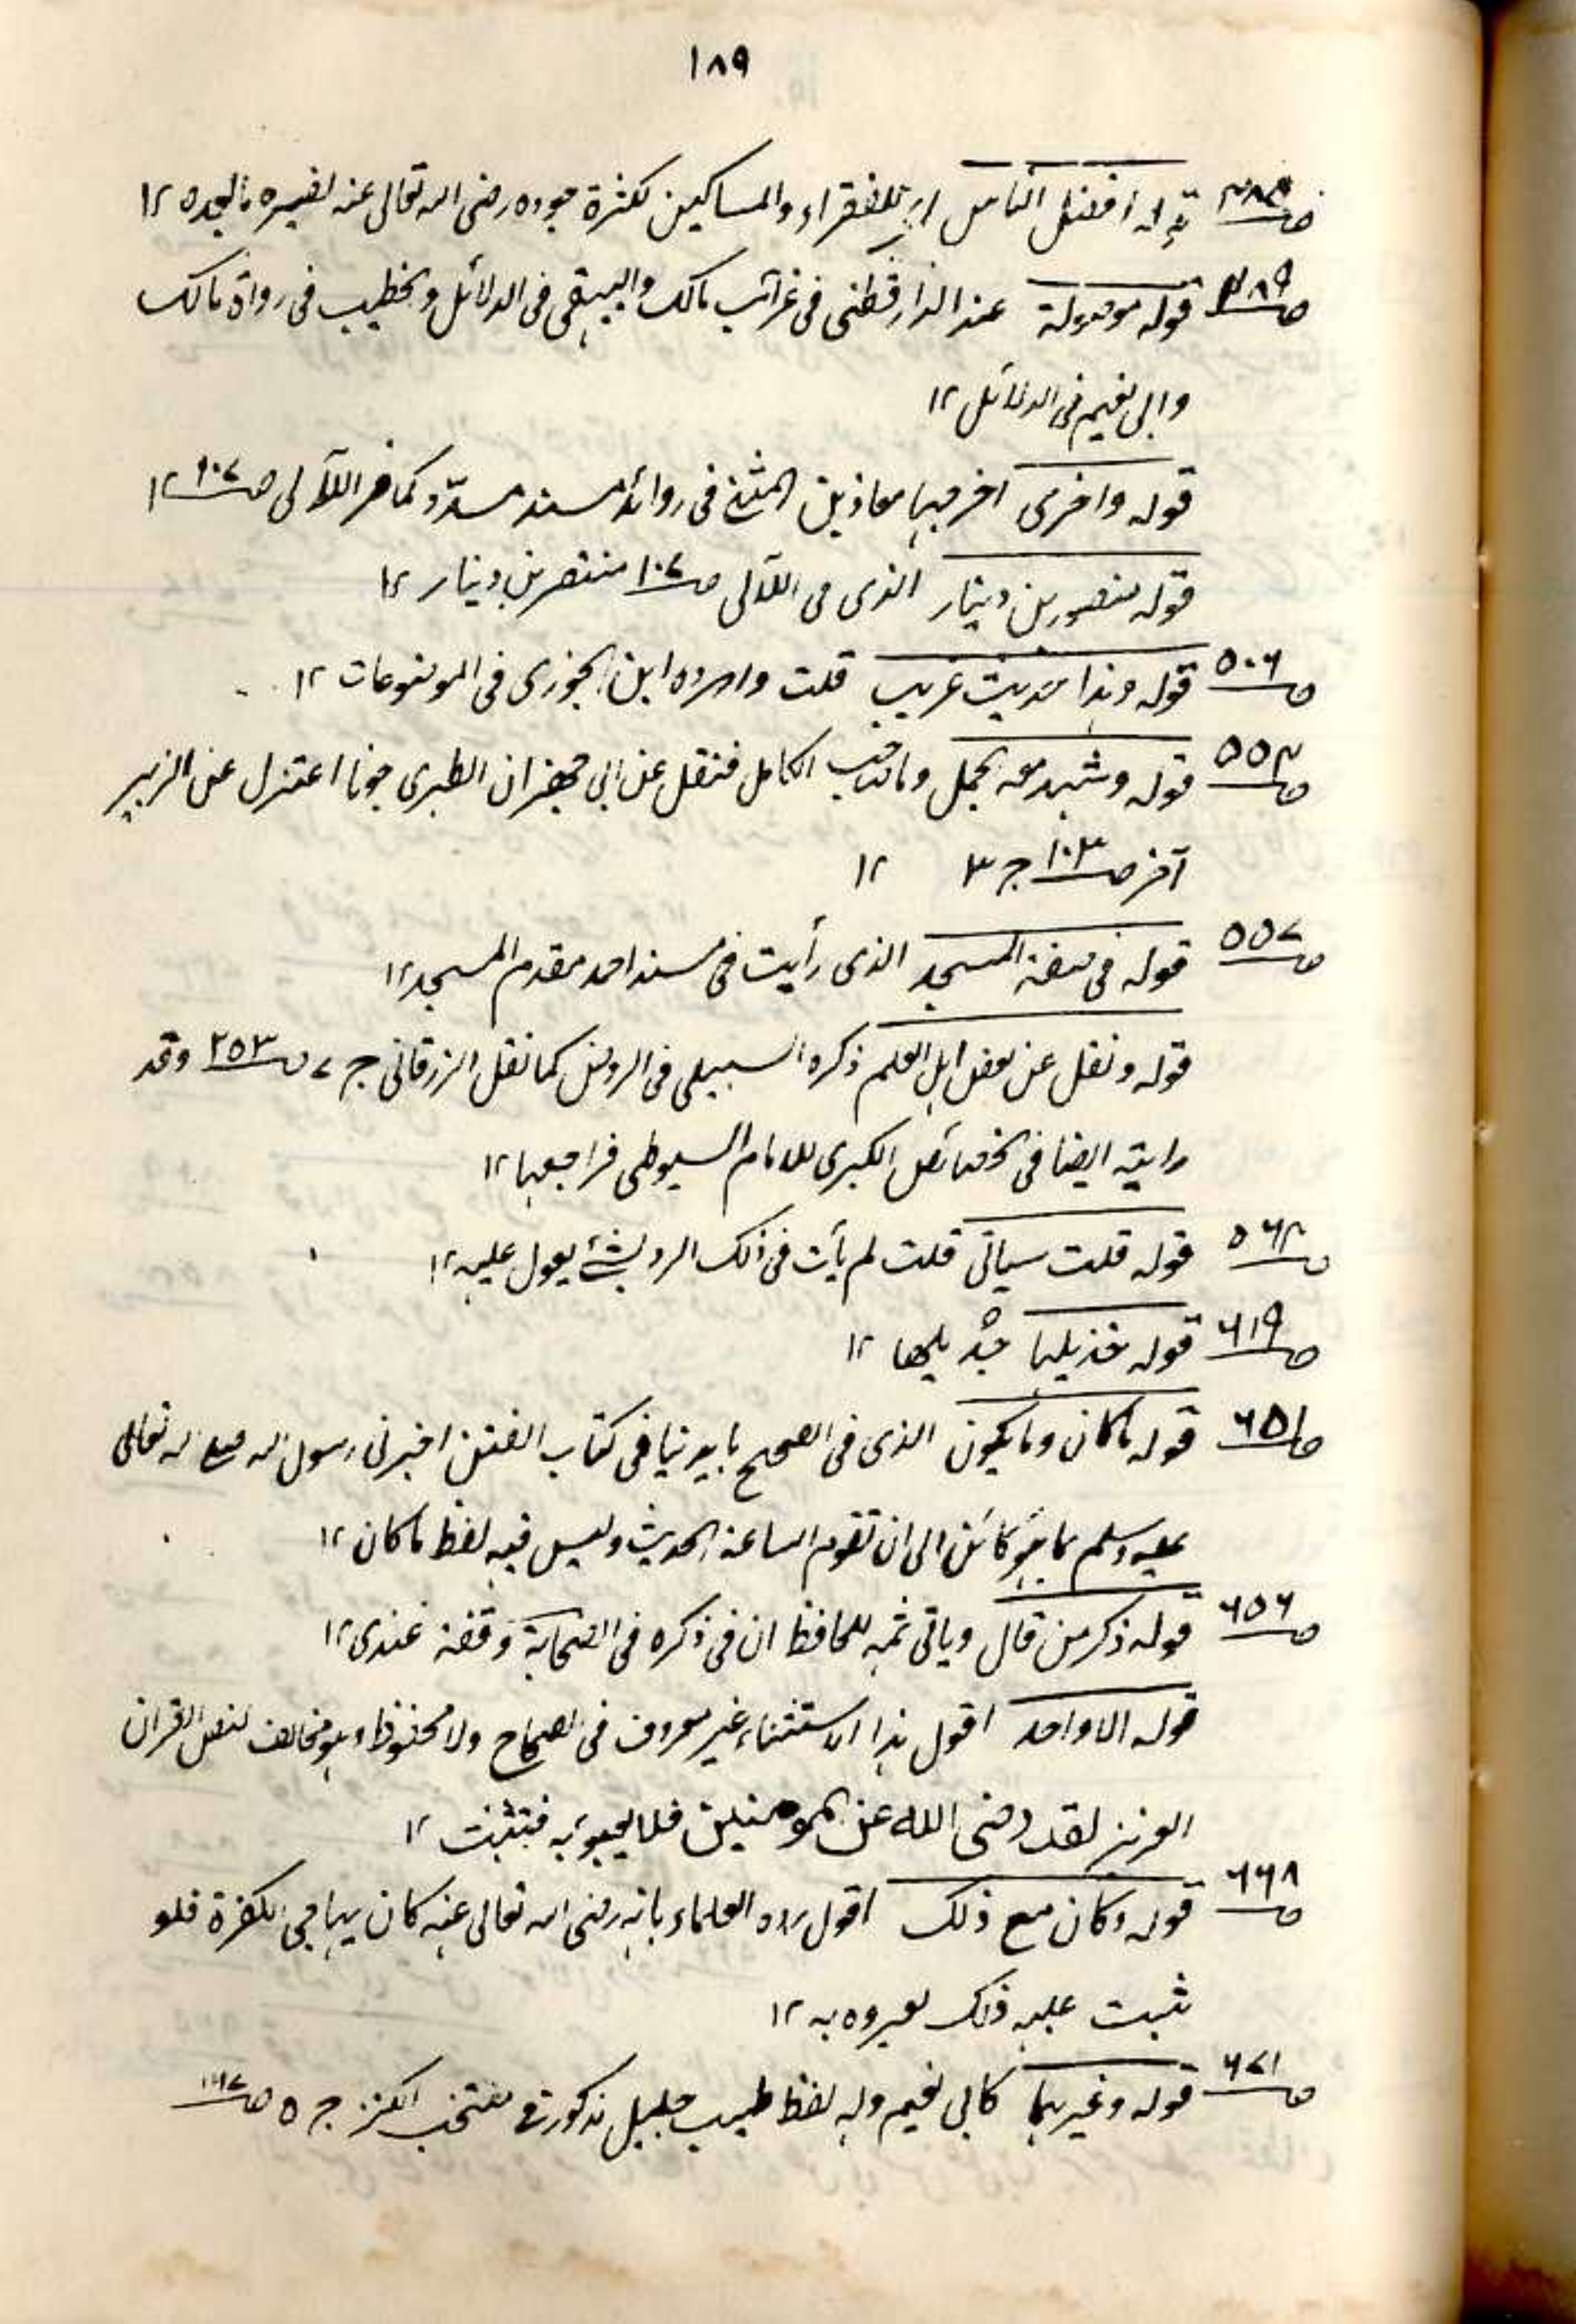 ١٨٩
قوله افضل الناس اي للفقراء والمساكين لكثرة جوده رضى الله تعالى عنه ١٢
ص٤٨٩ قوله موصولة عند الدارقطنى فى غرائب مالك والبيهقى فى الدلائل والخطيب فى رواة مالك
وابى نعيم فى الدلائل ١٢
قوله واخرى اخرجها معاذ بن المثنى فى زوائد مسند مسدد كما فى اللآلى ص١٠٧ ١٢
قوله منصور بن دينار الذى فى اللآلى ص١٠٧ منتصر بن دينار ١٢
ص٥٠٦ قوله وهذا حديث غريب قلت واورده ابن الجوزى فى الموضوعات ١٢
ص٥٥٣ قوله وشهد معه الجمل الكامل فنقل عن ابى جعفر ان الطبرى اعتزل عن الزبير
آخر ص١٠٣ ج ٣ ١٢
ص٥٥٧ قوله فى صفة المسجد الذى رأيت فى مسند احمد مقدم المسجد ١٢
قوله ونقل عن بعض اهل العلم ذكره السهيلى فى الروض كما نقل الزرقانى ج ٧ ص٢٥٣ وقد
رايته ايضا فى الخصائص الكبرى للامام السيوطى فراجعها ١٢
ص٥٦٨ قوله قلت سياتى قلت لم يأت فى ذلك الا بشئ يعول عليه ١٢
ص٦١٩ قوله ١٢
ص٦٥١ قوله ما كان وما يكون الذى فى الصحيح بايدينا فى كتاب الفتن اخبرنى رسول الله صلى الله تعالى
عليه وسلم بما هو كائن الى ان تقوم الساعة الحديث وليس فيه لفظ ما كان ١٢
ص٦٥٦ قوله ذكر من قال وياتى ثمه للحافظ ان فى ذكره فى الصحابة وقفة عندى ١٢
قوله الا واحد اقول هذا الاستثناء غير معروف فى الصحاح ولا محفوظ وهو مخالف لنص القران
العزيز لقد رضى الله عن المومنين فلا يعبؤ به فتثبت ١٢
ص٦٦٨ قوله وكان مع ذلك اقول رده العلماء بانه رضى الله تعالى عنه كان يهاجى الكفرة فلو
ثبت عليه ذلك لعيروه به ١٢
ص٦٧١ قوله وغيرهما كابى نعيم وله لفظ طيب جليل مذكور فى منتخب الكنز ج ٥